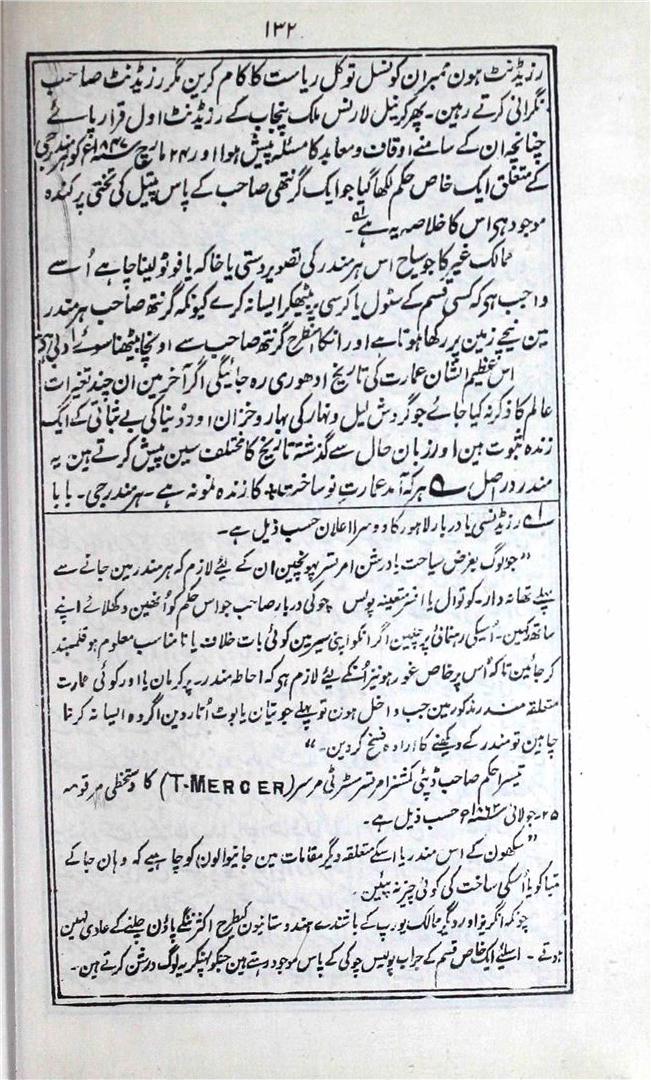 ۱۳۲
رزیڈنٹ ہون ممبران کونسل تو کل ریاست کا کام کرین مگر رزیڈنٹ صاحب
نگرانی کرتے رہین۔ پھر کرنیل لارنس ملک پنجاب کے رزیڈنٹ اول قرار پائے
چنانچہ ان کے سامنے اوقاف و معابد کا مسئلہ پیش ہوا اور ۲۴ مارچ ۱۸۴۷ء کو ہرمندر جی
کے متعلق ایک خاص حکم لکھا گیا جو ایک گرنتھی صاحب کے پاس پیتل کی تختی پر کندہ
موجود ہی اس کا خلاصہ یہ ہے۔
ممالک غیر کا جو سیاح اس ہرمندر کی تصویر دستی یا خاکہ یا فوٹو لینا چاہے اُسے
واجب ہی کہ کسی قسم کے سٹول یا کرسی پر بیٹھیکر ایسا نہ کرے کیونکہ گرنتھ صاحب ہرمندر
مین نیچے زمین پر رکھا ہوتا ہے اور انکا اسطرح گرنتھ صاحب سے اونچا بیٹھنا سوئے ادبی ہی
اس عظیم الشان عمارت کی تاریخ ادھوری رہ جائیگی اگر آخر مین ان چند تغیرات
عالم کا ذکر نہ کیا جائے جو گردش لیل و نہار کی بہار و خزان اور دنیا کی بے ثباتی کے ایک
زندہ ثبوت ہین اور زبان حال سے گذشتہ تاریخ کا مختلف سین پیش کرتے ہین یہ
مندر دراصل ے ہر کہ آمد عمارتِ نو ساخت ٭ کا زندہ نمونہ ہے۔ ہرمندر جی۔ بابا
لہ رزیڈنسی یا دربار لاہور کا دوسرا اعلان حسب ذیل ہے۔
”جو لوگ بغرض سیاحت یا درشن امرتسر پہونچین ان کے لئے لازم کہ ہرمندر مین جانے سے
پہلے تھانہ دار۔ کوتوال یا افسر متعینہ پولس چوکی دربار صاحب جو اس حکم کو اُنھین دکھلائے اپنے
ساتھ رکھین۔ اُسیکی رہنمائی پر چلین اگر انکو اپنی سیر مین کوئی بات خلاف یا نا مناسب معلوم ہو قلمبند
کر جائین تاکہ اُس پر خاص غور ہو نیز اُنکے لئے لازم ہی کہ احاطہ مندر پر کرمان یا اور کوئی عمارت
متعلقہ مندر مذکور مین جب داخل ہون تو پہلے جوتیان یا بوٹ اُتار دین اگر وہ ایسا نہ کرنا
چاہین تو مندر کے دیکھنے کا ارادہ فسخ کر دین۔“
تیسرا حکم صاحب ڈپٹی کمشنر امرتسر مسٹر ٹی مرسر (T-MERCER) کا دستخطی مرقومہ
۲۵۔جولائی ۱۸۶۲ء حسب ذیل ہے۔
”سکھون کے اس مندر یا اسکے متعلقہ دیگر مقامات مین جانیوالون کو چاہیے کہ وہان جا کے
تمباکو یا اُسکی ساخت کی کوئی چیز نہ پئین۔
چونکہ انگریز اور دیگر ممالک یورپ کے باشندے ہندوستانیون کیطرح اکثر ننگے پاؤن چلنے کے عادی نہین
ہوتے۔ اسلئے ایک خاص قسم کے جراب پولیس چوکی کے پاس موجود رہتے ہین جنکو پہنکر یہ لوگ درشن کرتے ہین۔